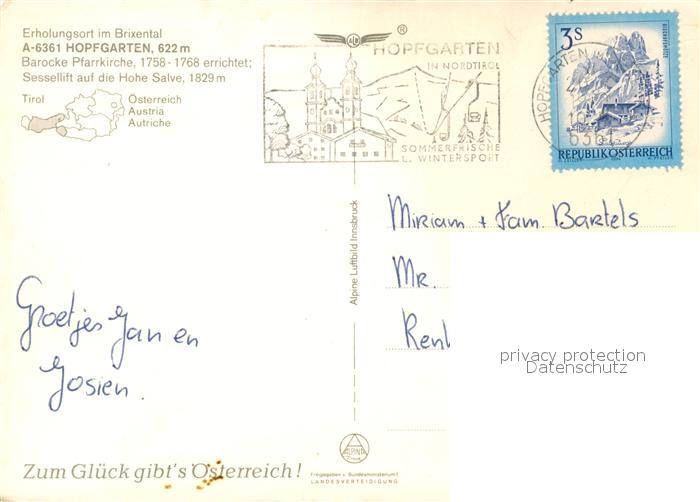 Erholungsort im Brixental
A-6361 HOPFGARTEN, 622 m
Barocke Pfarrkirche, 1758 - 1768 errichtet;
Sessellift auf die Hohe Salve, 1829 m
Tirol
Österreich
Austria
Autriche
®
HOPFGARTEN
IN NORDTIROL
SOMMERFRISCHE
U. WINTERSPORT
HOPFGARTEN
6361
3 S
REPUBLIK ÖSTERREICH
Alpine Luftbild Innsbruck
Miriam + Fam. Bartels
Mr.
Groetjes Jan en
Josien.
privacy protection
Datenschutz
ALPINE
Zum Glück gibt's Österreich!
Freigegeben v. Bundesministerium f.
LANDESVERTEIDIGUNG